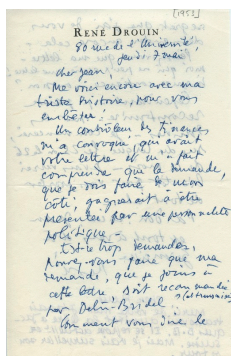 [1953]
RENÉ DROUIN
80 rue de l'Université
jeudi 7 mai
Cher Jean,
Me voici encore avec ma
triste histoire, pour vous
embêter :
Un contrôleur des Finances
m'a convoqué qui avait
votre lettre et m'a fait
comprendre que la demande,
que je dois faire de mon
côté, gagnerait à être
présentée par une personnalité
politique –
Est-ce trop demander,
Pouvez-vous faire que ma
demande, que je joins à
cette lettre soit recommandée
et transmise
par Debû-Bridel
Comment vous dire le